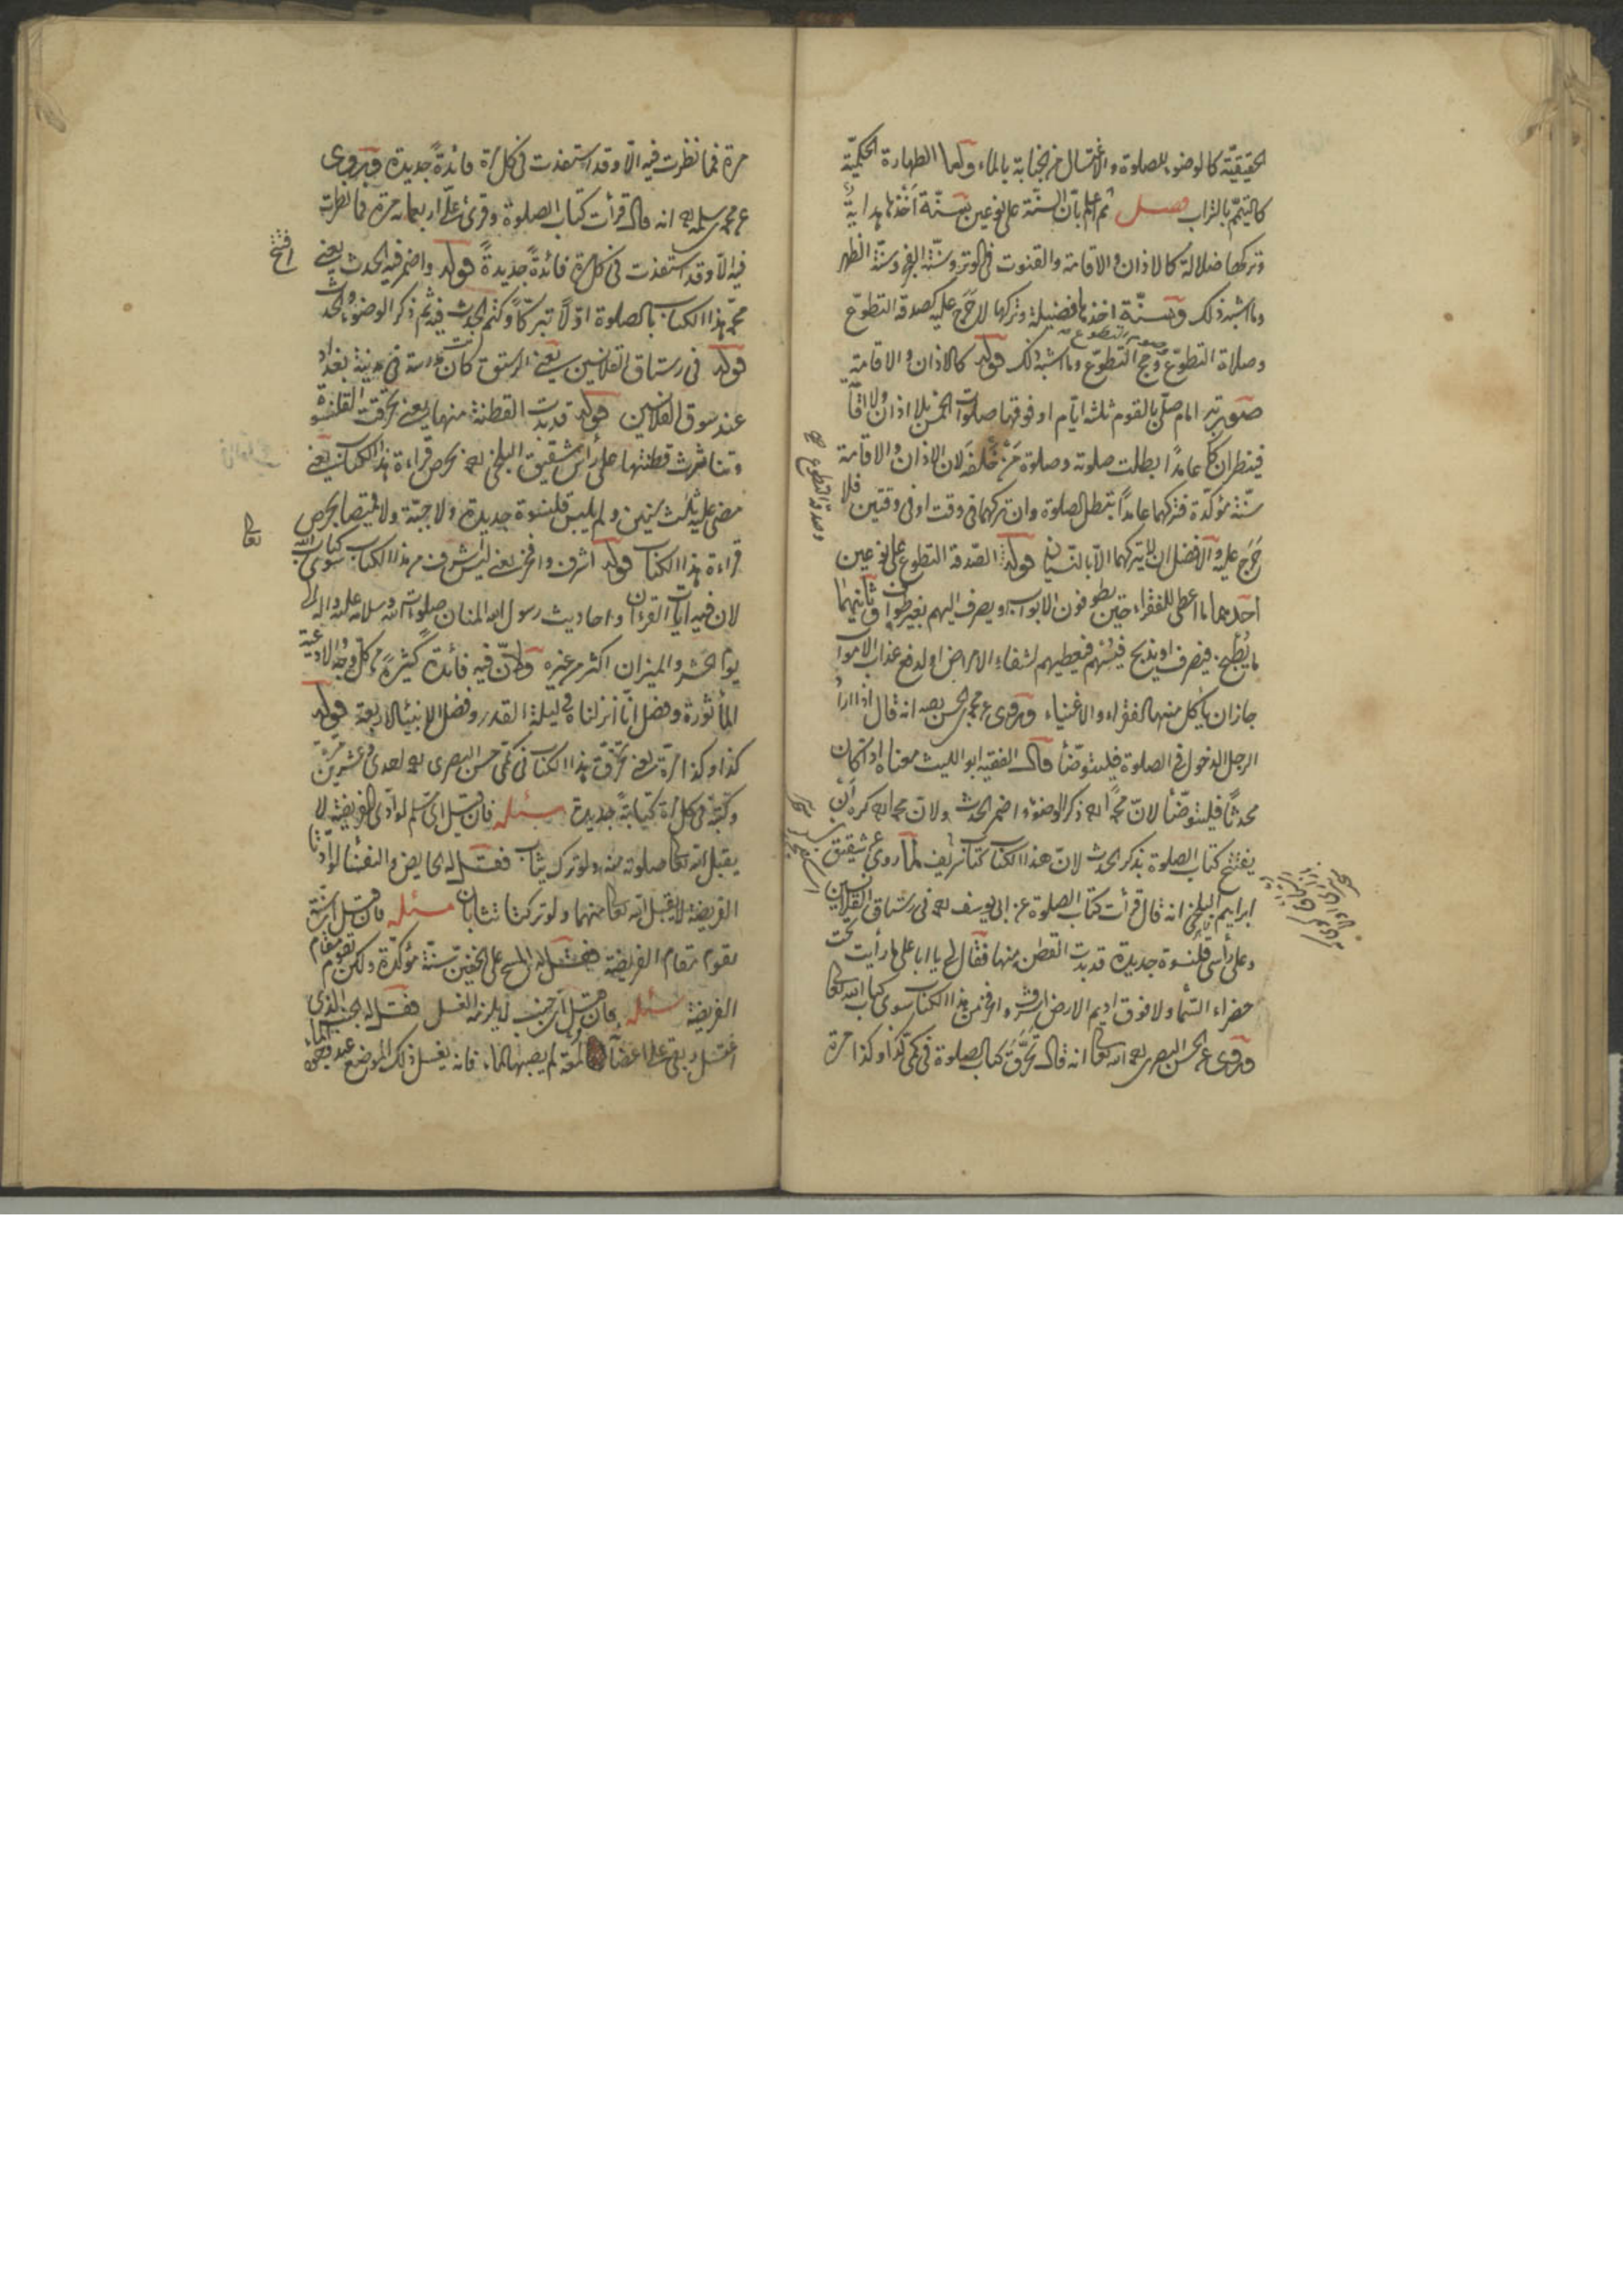 الحقيقيّة كالوضوء للصلوة والاغتسال من الجنابة بالماء واما الطهارة الحكميّة
كالتيمّم بالتراب فصل ثم اعلم بأنّ السنّة على نوعين سنّة أخذها هداية
وتركها ضلالة كالاذان والاقامة والقنوت فى الوتر وسنّة الفجر وسنّة الظهر
وما اشبه ذلك وسنّة اخذها فضيلة وتركها لا حَرَج عليه كصدقة التطوّع
وصلاة التطوّع وصوم التطوع وحج التطوّع وما اشبه ذلك قوله كالاذان والاقامة
صورته امام صلّى بالقوم ثلثة ايّام او فوقها صلوات الخمس بلا اذان ولا اقامة
فينظر ان كان عامدًا بطلت صلوته وصلوة مَنْ خَلْفَه لان الاذان والاقامة
سنّة مؤكّدة فتركهما عامدًا يبطل الصلوة وان تركهما فى وقت او فى وقتين فلا
حَرَج عليه والافضل ان لا يتركهما الّا بالنسيان قوله الصّدقة التطوع على نوعين
احدهما ما اعطى للفقراء حين يطوفون الابواب ويصرف اليهم بغير طواف وثانيهما
ما يُطبخ فيصرف او يذبح فيعطيهم لشفاء الامراض او لدفع عذاب الاموات
جاز ان ياكل منها الفقراء والاغنياء وروى عن محمد بن الحسن رحمه الله انه قال اذا اراد
الرجل الدخول فى الصلوة فليتوضّأ قال الفقيه ابو الليث معناه اذا كان
محدثًا فليتوضّأ لانّ محمّدًا رحمه الله ذكر الوضوء واضمر الحدث ولان محمد رحمه الله كره أن
يفتتح كتاب الصلوة بذكر الحدث لانّ هذا الكتاب كتاب شريف لما روى عن شقيق بن
ابراهيم البلخى انه قال قرأت كتاب الصلوة عن ابى يوسف رحمه الله فى رستاق القلانسين
وعلى رأسى قلنسوة جديدة قد بدت القطن منها فقال لى يا ابا على ما رأيت تحت
خضراء السّماء ولا فوق اديم الارض اشرف وافخر من هذا الكتاب سوى كتاب الله تعالى
وروى عن الحسن البصرى رحمه الله تعالى انه قال تخرّق كتاب الصلوة فى كمّى كذا وكذا مرة
وصدقة التطوع صح
مرة فما نظرت فيه الّا وقد استفدت فى كل مرة فائدةً جديدة وروى
عن محمد بن سلمة رحمه الله انه قال قرأت كتاب الصلوة وقرئ علىّ اربعمائة مرة فما نظرت
فيه الّا وقد استفدت فى كل مرة فائدةً جديدةً قوله واضمر فيه الحدث يعنى
افتتح
محمّد هذا الكتاب بالصلوة اوّلًا تبرّكًا وكتم الحدث فيه ثم ذكر الوضوء والحدث
قوله فى رستاق القلانسين يعنى الرستق كانت مدرسة فى مدينة بغداد
عند سوق القلانسين قوله قد بدت القطنة منها يعنى تخرّقت القلنسوة
وتناثرت قطنتها على رأس شقيق البلخى رحمه الله بحرص قراءة هذا الكتاب يعنى
مضى عليه ثلث سنين ولم يلبس قلنسوة جديدة ولا جبّة ولا قميصا بحرص
قراءة هذا الكتاب قوله اشرف وافخر يعنى ليس اشرف من هذا الكتاب سوى كتاب الله
تعالى
لان فيه آيات القرءان واحاديث رسول الله المنان صلوات الله وسلامه عليه واله الى
يوم الحشر والميزان اكثر من غيره ولانّ فيه فائدة كثيرةً من كل وجه والادعية
المأثورة وفضل انّا انزلناه فى ليلة القدر وفضل الانبياء الاربعة قوله
كذا وكذا مرّة يعنى تخرّق هذا الكتاب فى كمّى حسن البصرى رحمه الله احدى وعشرين مرّة
وكتبه فى كل مرّة كتابةً جديدة مسئله فان قيل اىّ مسلم لو ادّى الفريضة لا
يقبل الله تعالى صلوته منه ولو ترك يثاب فقل له الحايض والنفساء لو ادّتا
الفريضة لا يقبل الله تعالى منهما ولو تركتا تثابان مسئله فان قيل اىّ سنّة
تقوم مقام الفريضة فقل له المسح على الخفين سنّة مؤكّدة ولكن تقوم مقام
الفريضة مسئله فان قيل اىّ جنب لا يلزمه الغسل فقل له الجنب الذى
اغتسل وبقى على اعضائه لمعة لم يصبها الماء فانه يغسل ذلك الموضع عند وجود الماء